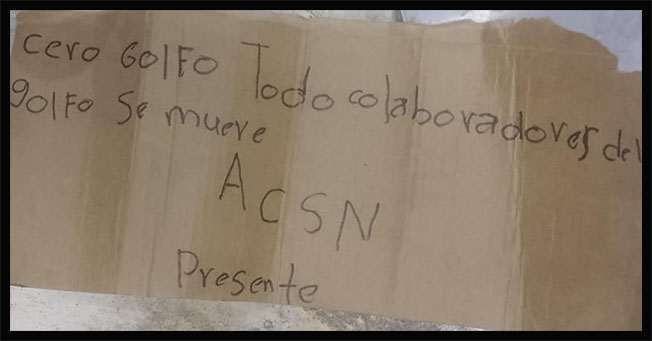 cero GOlFO Todo colaboradores del
golFo Se mueve
ACSN
Presente